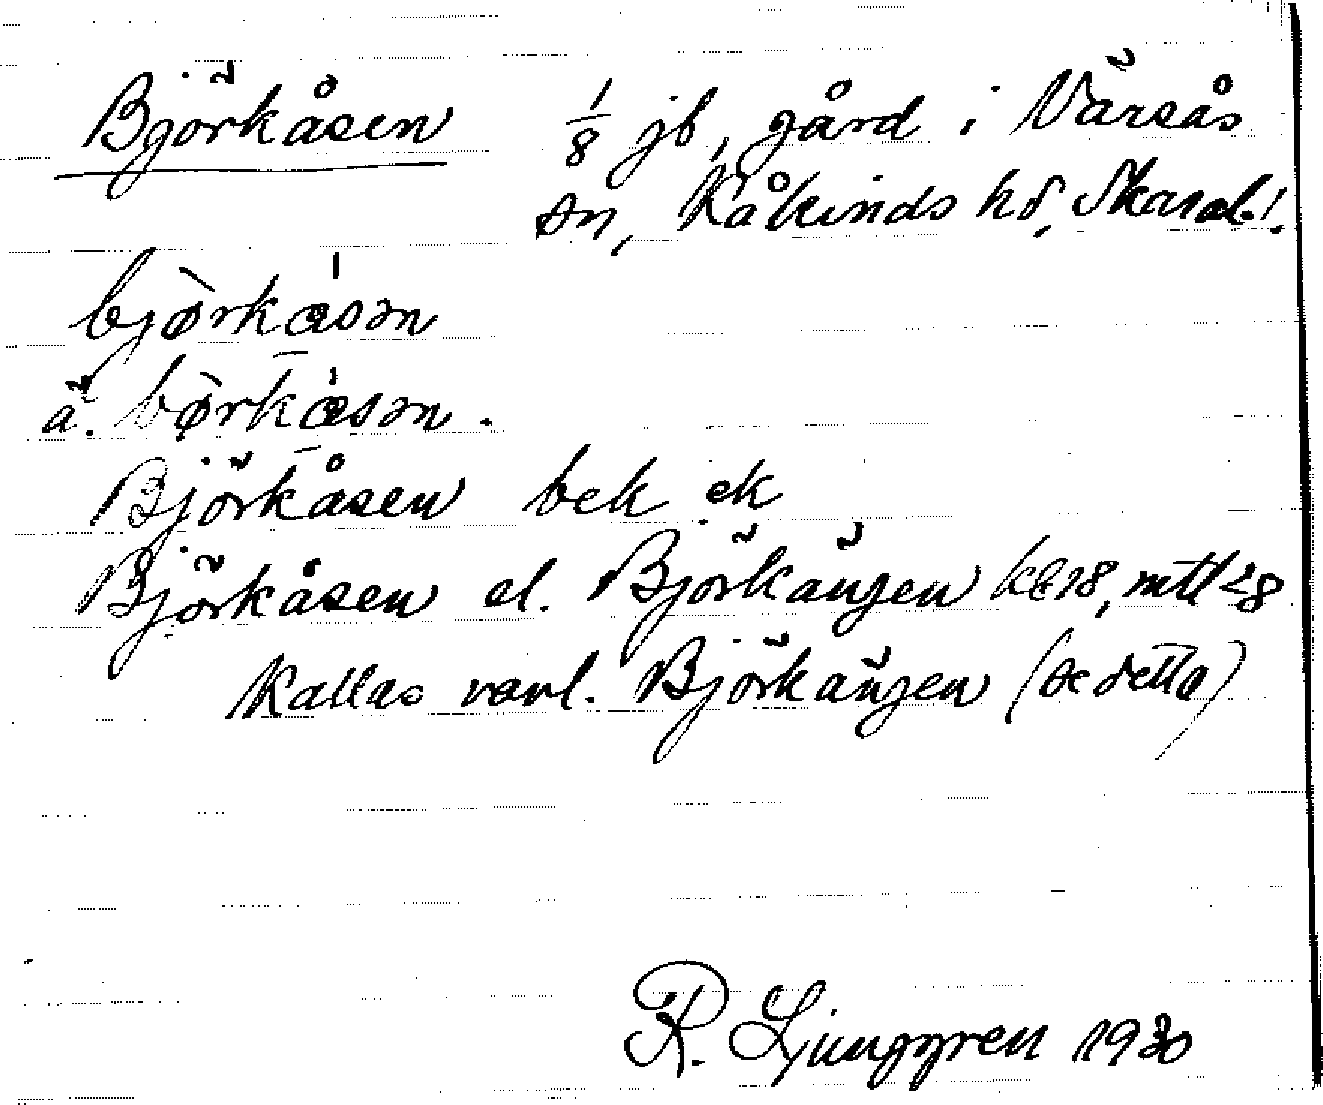 Björkåsen 1/8 jb, gård i Värsås
sn, Kåkinds hd, Skarabl.
bjò̤rkásən
ä. bò̤rkásən.
Björkåsen bek ek
Björkåsen el. Björkängen kb 18, mtl 28
Kallas vanl. Björkängen (se detta)
R. Ljunggren 1930